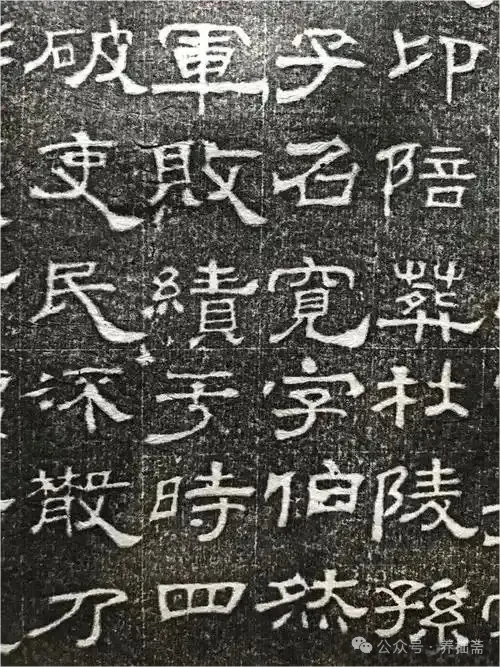 印陪葬杜陵孫
子名寬字伯然
軍敗績于時四
破吏民流散乃
公众号·养拙斋